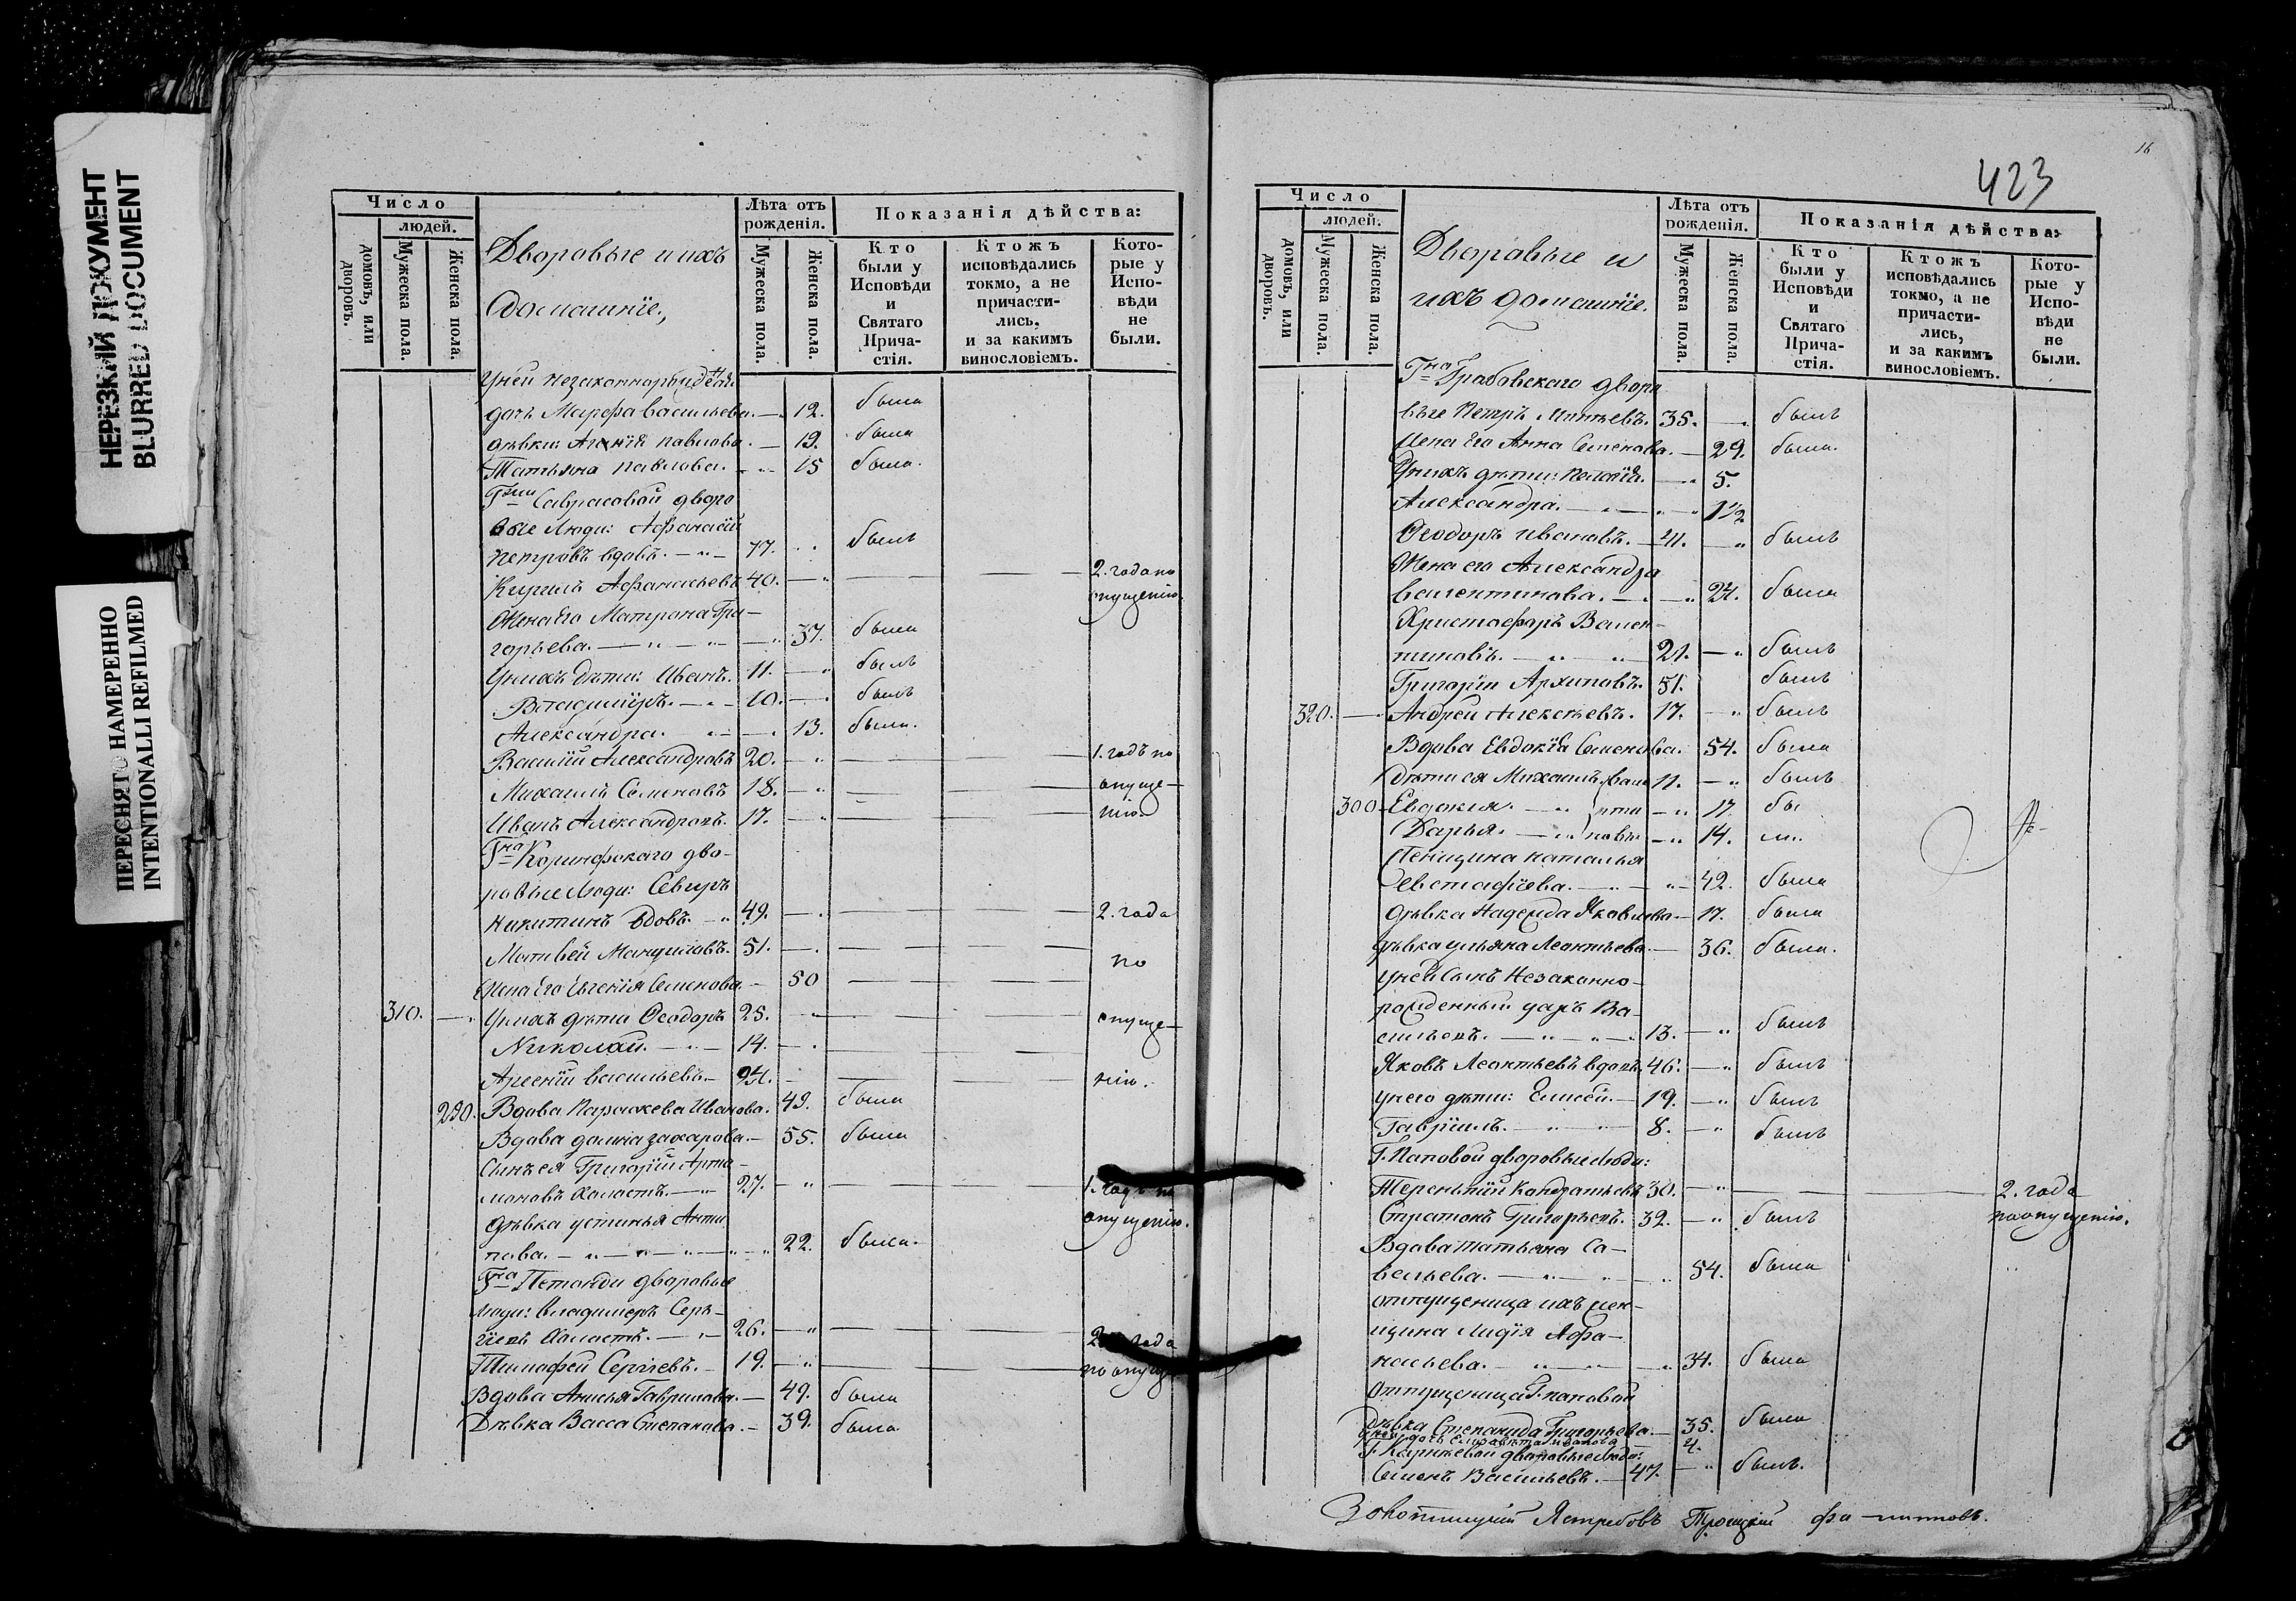 НЕРЕЗКИЙ ДОКУМЕНТ
BLURRED DOCUMENT
ПЕРЕСНЯТО НАМЕРЕННО
INTENTIONALLI REFILMED
Число
людей.
домовъ, или дворовъ.
Мужеска пола.
Женска пола.
Дворовые и ихъ
домашніе,
Лѣта отъ рожденія.
Мужеска пола.
Женска пола.
Показанія дѣйства:
Кто были у Исповѣди и Святаго Прича-стія.
Ктожъ исповѣдались токмо, а не причасти-лись, и за какимъ винословіемъ.
Кото-рые у Испо-вѣди не были.
У ней незаконнорожденная
дочь Марфа Васильева. — 12. была
дѣвки: Агенія Павлова. — 19. была
Татьяна Павлова. — 15 была.
Г-жи Саврасовой дворо
вые Люди: Афанасій
Петровъ вдовъ. — 77. былъ
Кирилъ Афанасьевъ 40. — 2. года по
опущенію.
Жена его Матрона Гри-
горьева. — 37. была
У нихъ дѣти: Иванъ. 11. — былъ
Владиміръ. — 10. — былъ
Александра. — 13. была.
Василій Александровъ 20. — 1. годъ по
Михаилъ Семеновъ 18. — опуще-
Иванъ Александровъ. 17. — нію.
Г-на Коринфскаго дво-
ровые Люди: Севиръ
Никитинъ вдовъ. — 49. — 2. года
Матвей Мануиловъ. 51. —
по
Жена его Евгенія Семенова. — 50
310. — У нихъ дѣти Ѳеодоръ 25. опуще-
Николай. — 14. —
Арсеній Васильевъ. — 24. — нію.
290. Вдова Параскева Иванова. 49. была
Вдова Домна Захарова. — 55. была
Сынъ ея Григорій Арта-
моновъ холостъ. — 27. — 1. годъ по
опущенію.
Дѣвка Устинья Анти
пова. — 22. была.
Г-на Петонди дворовые
Люди: Владимеръ Сер-
гіевъ холостъ. — 26. — 2. года
Тимофей Сергіевъ. — 19. — по опущ
Вдова Анисья Гаврилова. — 49. была
Дѣвка Васса Степанова. — 39. была
16
423
Число
людей.
домовъ, или дворовъ.
Мужеска пола.
Женска пола.
Дворовые и
ихъ домашніе.
Лѣта отъ рожденія.
Мужеска пола.
Женска пола.
Показанія дѣйства:
Кто были у Исповѣди и Святаго Прича-стія.
Ктожъ исповѣдались токмо, а не причасти-лись, и за какимъ винословіемъ.
Кото-рые у Испо-вѣди не были.
Г-на Грабовскаго дворо
вые Петръ Матвѣевъ. 35. — былъ
Жена его Анна Семенова. — 29. была.
У нихъ дѣти: Пелагія. — 5.
Александра. — 1½
Ѳеодоръ Ивановъ. — 41. — былъ
Жена его Александра
Валентинова. — 24. была
Христофоръ Вален-
тиновъ. — 21. — былъ
Григорій Архиповъ. 51. былъ
320. — Андрей Алексѣевъ. 17. — былъ
Вдова Евдокія Семенова. 54. была
Дѣти ея Михаилъ 11. — былъ
300 — Евдокія. — 17. бы
Дарья. — 14. ли.
Женщина Наталья
Евстафіева. — 42. была
Дѣвка Надежда Яковлева — 17. была
Дѣвка Ульяна Леонтьева — 36. была.
У ней сынъ Незаконно-
рожденный Уаръ Ва-
сильевъ. — 13. — былъ
Яковъ Леонтьевъ вдовъ 46. — былъ
У него дѣти: Елисей. — 19. — былъ
Гавріилъ. — 8. — былъ
Г. Поповой дворовые Люди:
Терентій Кондратьевъ 30. — 2. года
по опущенію.
Стратонъ Григорьевъ. 32. — былъ
Вдова Татьяна Са-
вельева. — 54. была
Отпущеница ихъ жен-
щина Лидія Афа-
насьева. — 34. была
Отпущеница Г. Поповой
Дѣвка Степанида Григорьева. — 35. была
У ней дочь Елизавета Иванова 4.
Г. Карнѣевой дворовые Люди:
Семенъ Васильевъ. — 47. — былъ.
Ястребовъ Троицкій